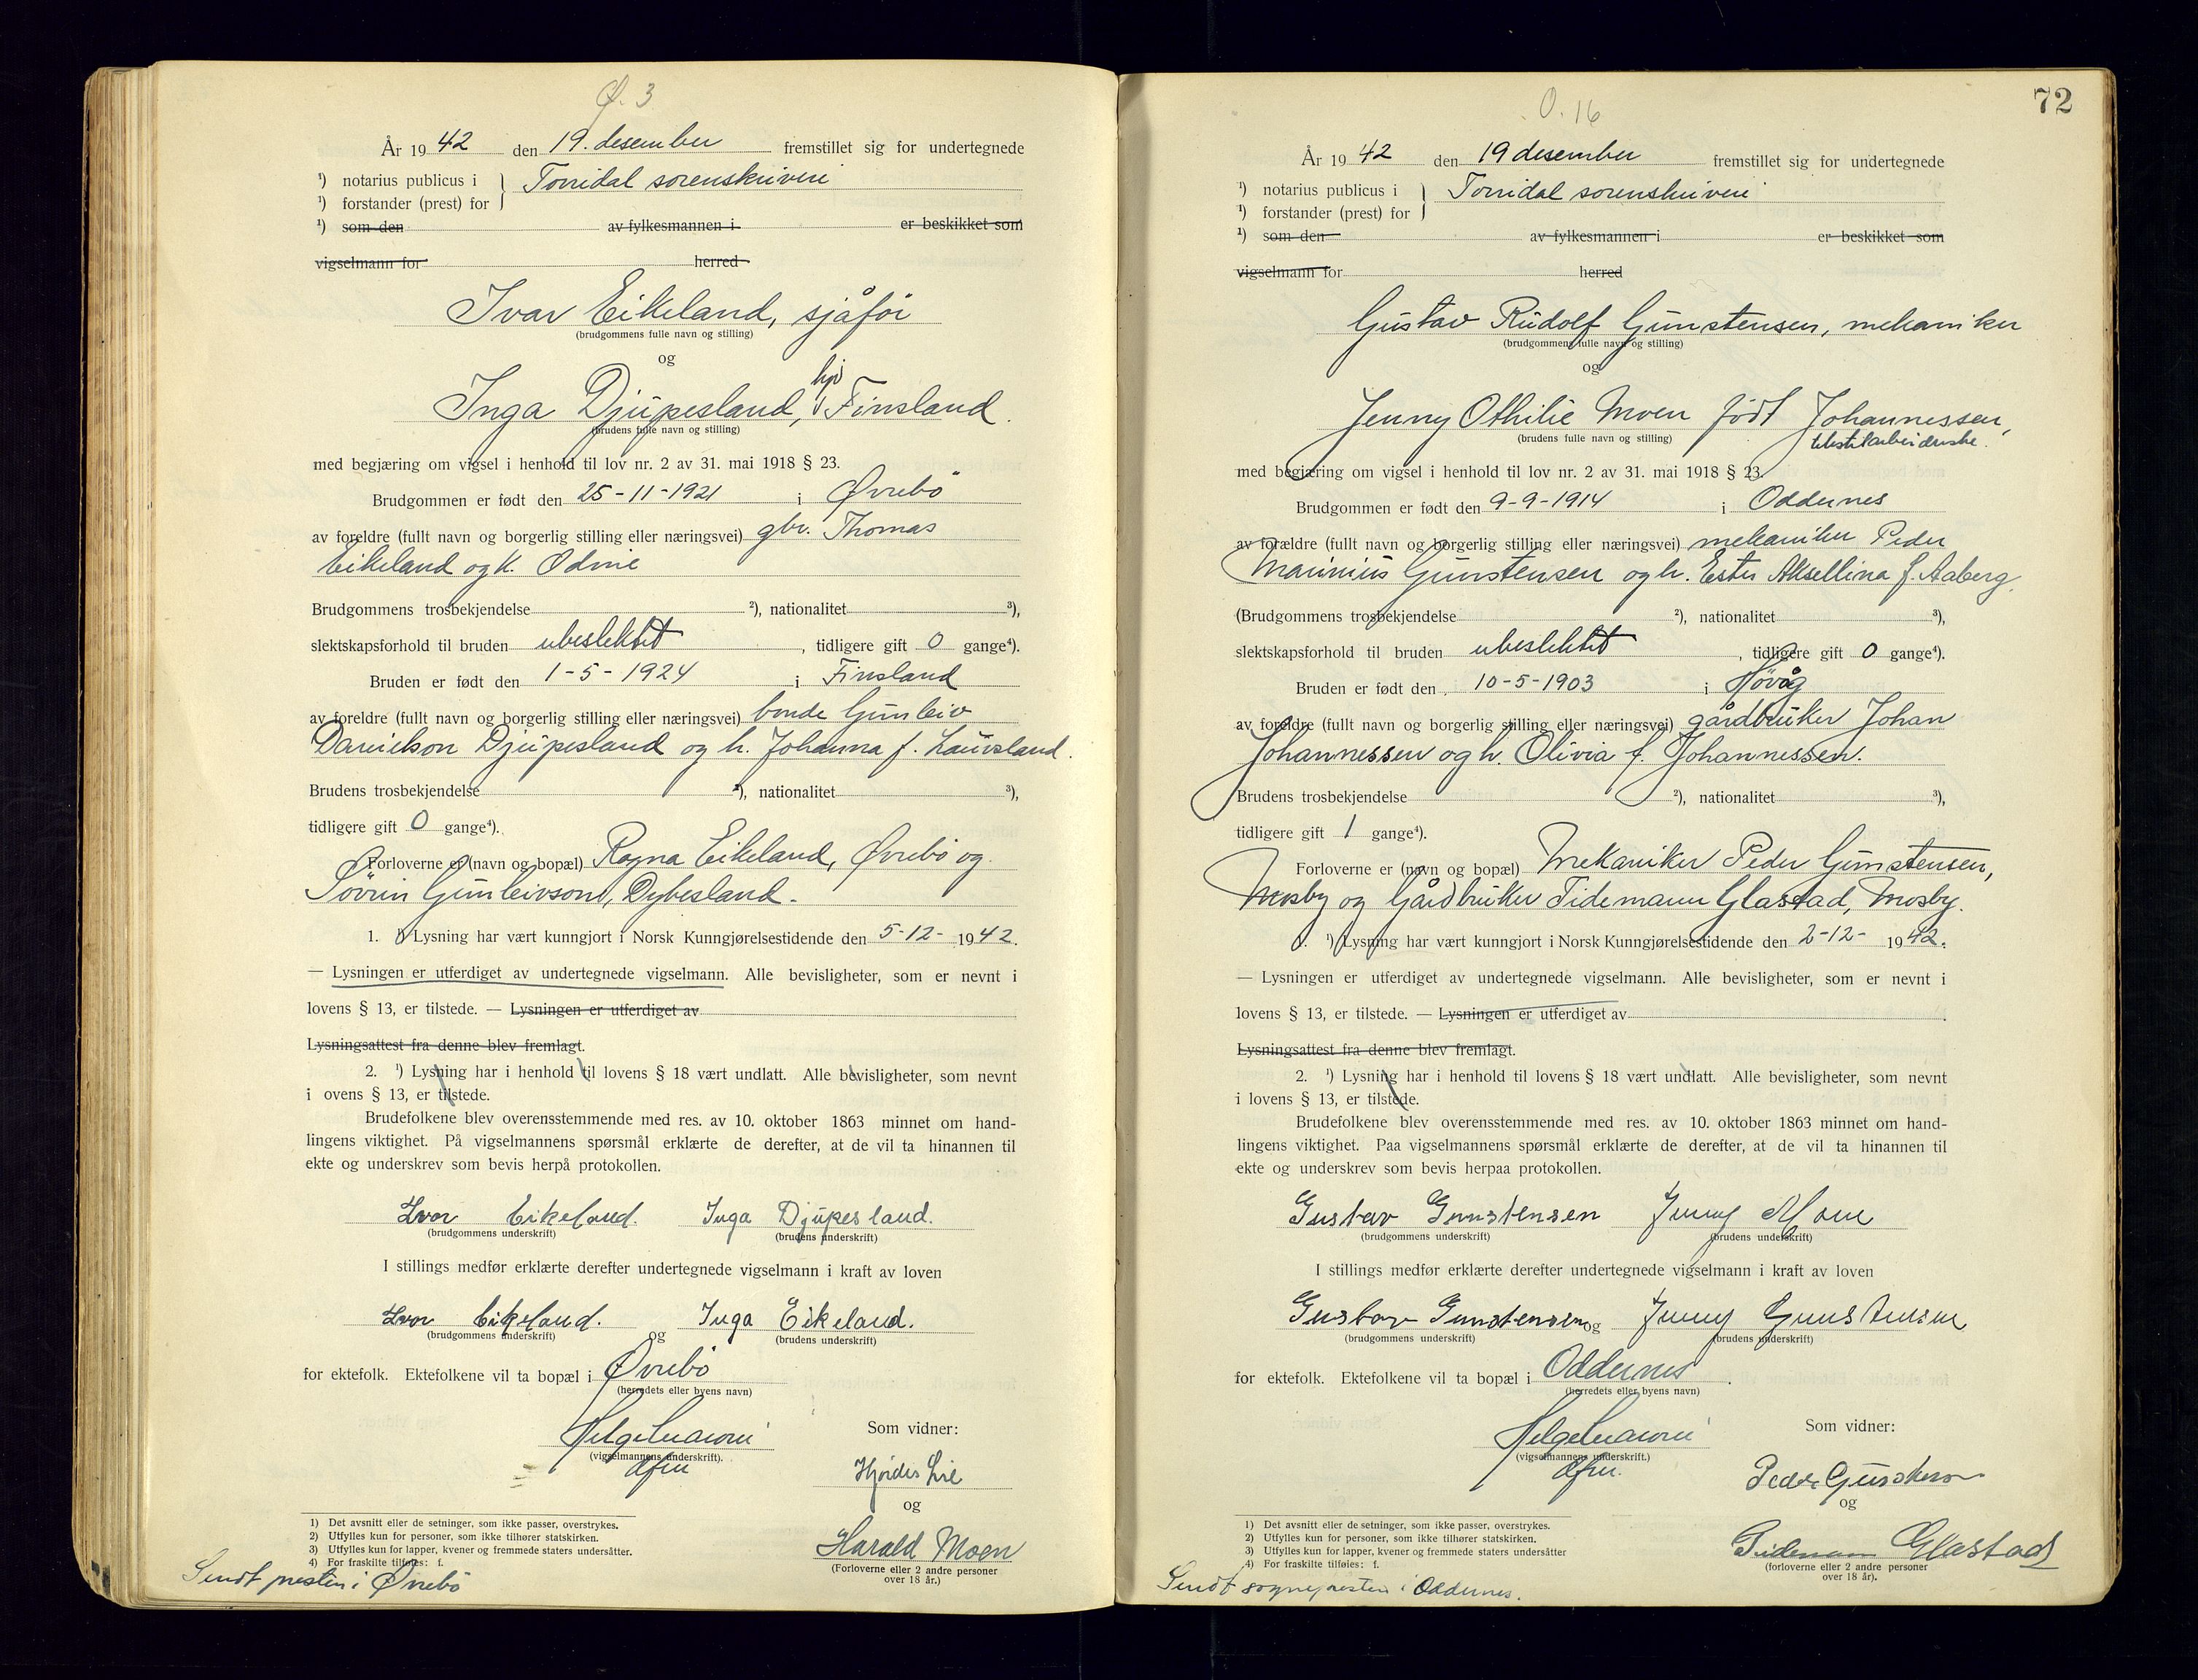 Ø. 3
År 19 42 den 19. desember fremstillet sig for undertegnede
¹) notarius publicus i } Torridal sorenskriveri
¹) forstander (prest) for
¹) som den av fylkesmannen i er beskikket som
vigselmann for herred
Ivar Eikeland, sjåfør
(brudgommens fulle navn og stilling)
og
Inga Djupesland, hjv Finsland.
(brudens fulle navn og stilling)
med begjæring om vigsel i henhold til lov nr. 2 av 31. mai 1918 § 23.
Brudgommen er født den 25-11-1921 i Øvrebö
av foreldre (fullt navn og borgerlig stilling eller næringsvei) gbr. Thomas
Eikeland og k. Odine
Brudgommens trosbekjendelse ²), nationalitet ³),
slektskapsforhold til bruden ubeslektet, tidligere gift 0 gange⁴).
Bruden er født den 1-5-1924 i Finsland
av foreldre (fullt navn og borgerlig stilling eller næringsvei) bonde Gunleiv
Danielson Djupesland og h. Johanna f. Lauvsland.
Brudens trosbekjendelse ²), nationalitet ³),
tidligere gift 0 gange⁴).
Forloverne er (navn og bopæl) Ragna Eikeland, Øvrebö og
Sövrin Gunleivson, Dybesland.
1. ¹) Lysning har vært kunngjort i Norsk Kunngjørelsestidende den 5-12- 1942.
— Lysningen er utferdiget av undertegnede vigselmann. Alle bevisligheter, som er nevnt i
lovens § 13, er tilstede. — Lysningen er utferdiget av
Lysningsattest fra denne blev fremlagt.
2. ¹) Lysning har i henhold til lovens § 18 vært undlatt. Alle bevisligheter, som nevnt
i ovens § 13, er tilstede.
Brudefolkene blev overensstemmende med res. av 10. oktober 1863 minnet om hand-
lingens viktighet. På vigselmannens spørsmål erklærte de derefter, at de vil ta hinannen til
ekte og underskrev som bevis herpå protokollen.
Ivar Eikeland. Inga Djupesland.
(brudgommens underskrift) (brudens underskrift)
I stillings medfør erklærte derefter undertegnede vigselmann i kraft av loven
Ivar Eikeland. og Inga Eikeland.
(brudgommens underskrift) (brudens underskrift)
for ektefolk. Ektefolkene vil ta bopæl i Øvrebö
(herredets eller byens navn)
(vigselmannens underskrift).
dfm
Som vidner:
Hjørdis Lie
og
Harald Moen
(Forloverne eller 2 andre personer
over 18 år.)
1) Det avsnitt eller de setninger, som ikke passer, overstrykes.
2) Utfylles kun for personer, som ikke tilhører statskirken.
3) Utfylles kun for lapper, kvener og fremmede staters undersåtter.
4) For fraskilte tilføies: f.
Sendt presten i Øvrebö
72
O. 16
År 19 42 den 19 desember fremstillet sig for undertegnede
¹) notarius publicus i } Torridal sorenskriveri
¹) forstander (prest) for
¹) som den av fylkesmannen i er beskikket som
vigselmann for herred
Gustav Rudolf Gunstensen, mekaniker
(brudgommens fulle navn og stilling)
og
Jenny Othilie Moen født Johannessen,
tekstilarbeiderske.
(brudens fulle navn og stilling)
med begjæring om vigsel i henhold til lov nr. 2 av 31. mai 1918 § 23.
Brudgommen er født den 9-9-1914 i Oddernes
av forældre (fullt navn og borgerlig stilling eller næringsvei) mekaniker Peder
Marinius Gunstensen og h. Ester Aksellina f. Aaberg.
(Brudgommens trosbekjendelse ²), nationalitet ³),
slektskapsforhold til bruden ubeslektet, tidligere gift 0 gange⁴).
Bruden er født den 10-5-1903 i Høvåg
av foreldre (fullt navn og borgerlig stilling eller næringsvei) gårdbruker Johan
Johannessen og h. Olivia f. Johannessen.
Brudens trosbekjendelse ²), nationalitet ³),
tidligere gift 1 gange⁴).
Forloverne er (navn og bopæl) Mekaniker Peder Gunstensen,
Mosby og Gårdbruker Tidemann Glastad, Mosby.
1. ¹) Lysning har vært kunngjort i Norsk Kunngjørelsestidende den 2-12- 1942.
— Lysningen er utferdiget av undertegnede vigselmann. Alle bevisligheter, som er nevnt i
lovens § 13, er tilstede. — Lysningen er utferdiget av
Lysningsattest fra denne blev fremlagt.
2. ¹) Lysning har i henhold til lovens § 18 vært undlatt. Alle bevisligheter, som nevnt
i lovens § 13, er tilstede.
Brudefolkene blev overensstemmende med res. av 10. oktober 1863 minnet om hand-
lingens viktighet. Paa vigselmannens spørsmål erklærte de derefter, at de vil ta hinannen til
ekte og underskrev som bevis herpaa protokollen.
Gustav Gunstensen Jenny Moen
(brudgommens underskrift) (brudens underskrift)
I stillings medfør erklærte derefter undertegnede vigselmann i kraft av loven
Gustav Gunstensen og Jenny Gunstensen
(brudgommens underskrift) (brudens underskrift)
for ektefolk. Ektefolkene vil ta bopæl i Oddernes.
(herredets eller byens navn)
(vigselmannens underskrift.)
dfm.
Som vidner:
Peder Gunstensen
og
Tidemann Glastad
(forloverne eller 2 andre personer
over 18 år).
1) Det avsnitt eller de setninger, som ikke passer, overstrykes.
2) Utfylles kun for personer, som ikke tilhører statskirken.
3) Utfylles kun for lapper, kvener og fremmede staters undersåtter
4) For fraskilte tilføies: f.
Sendt sognepresten i Oddernes.